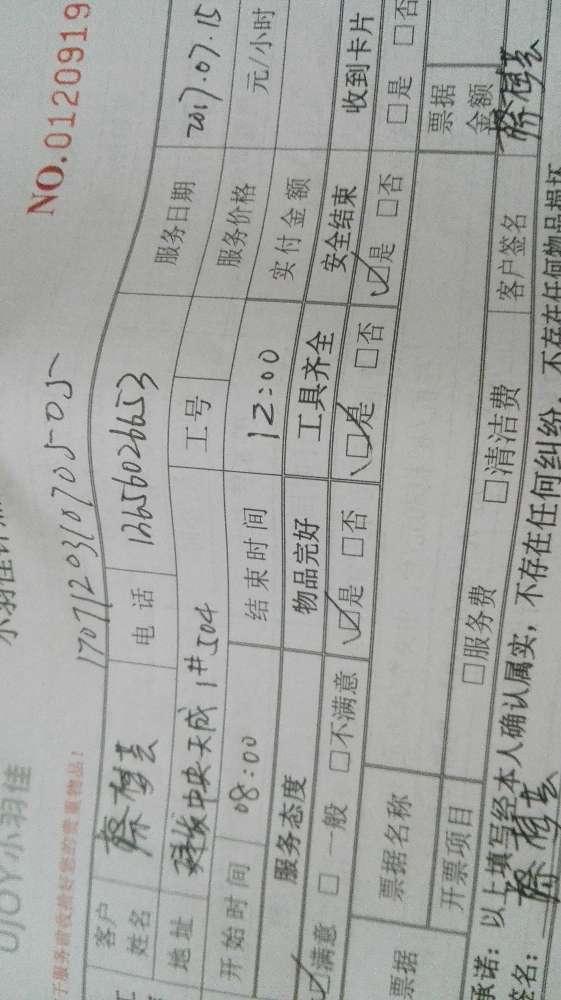 UJOY小羽佳
NO.0120919
于服务前收拾好您的贵重物品！
170712031070505
客户姓名 蔡梅芸 电话 13656026653 服务日期 2017.07.15
地址 中央天成1#504 工号 服务价格 元/小时
开始时间 08:00 结束时间 12:00 实付金额
服务态度 物品完好 工具齐全 安全结束 收到卡片
☑满意 □一般 □不满意 ☑是 □否 ☑是 □否 ☑是 □否 □是 □否
票据 票据名称 票据金额
开票项目 □服务费 □清洁费 客户签名 蔡梅芸
承诺：以上填写经本人确认属实，不存在任何纠纷，不存在任何物品损坏
签名：蔡梅芸